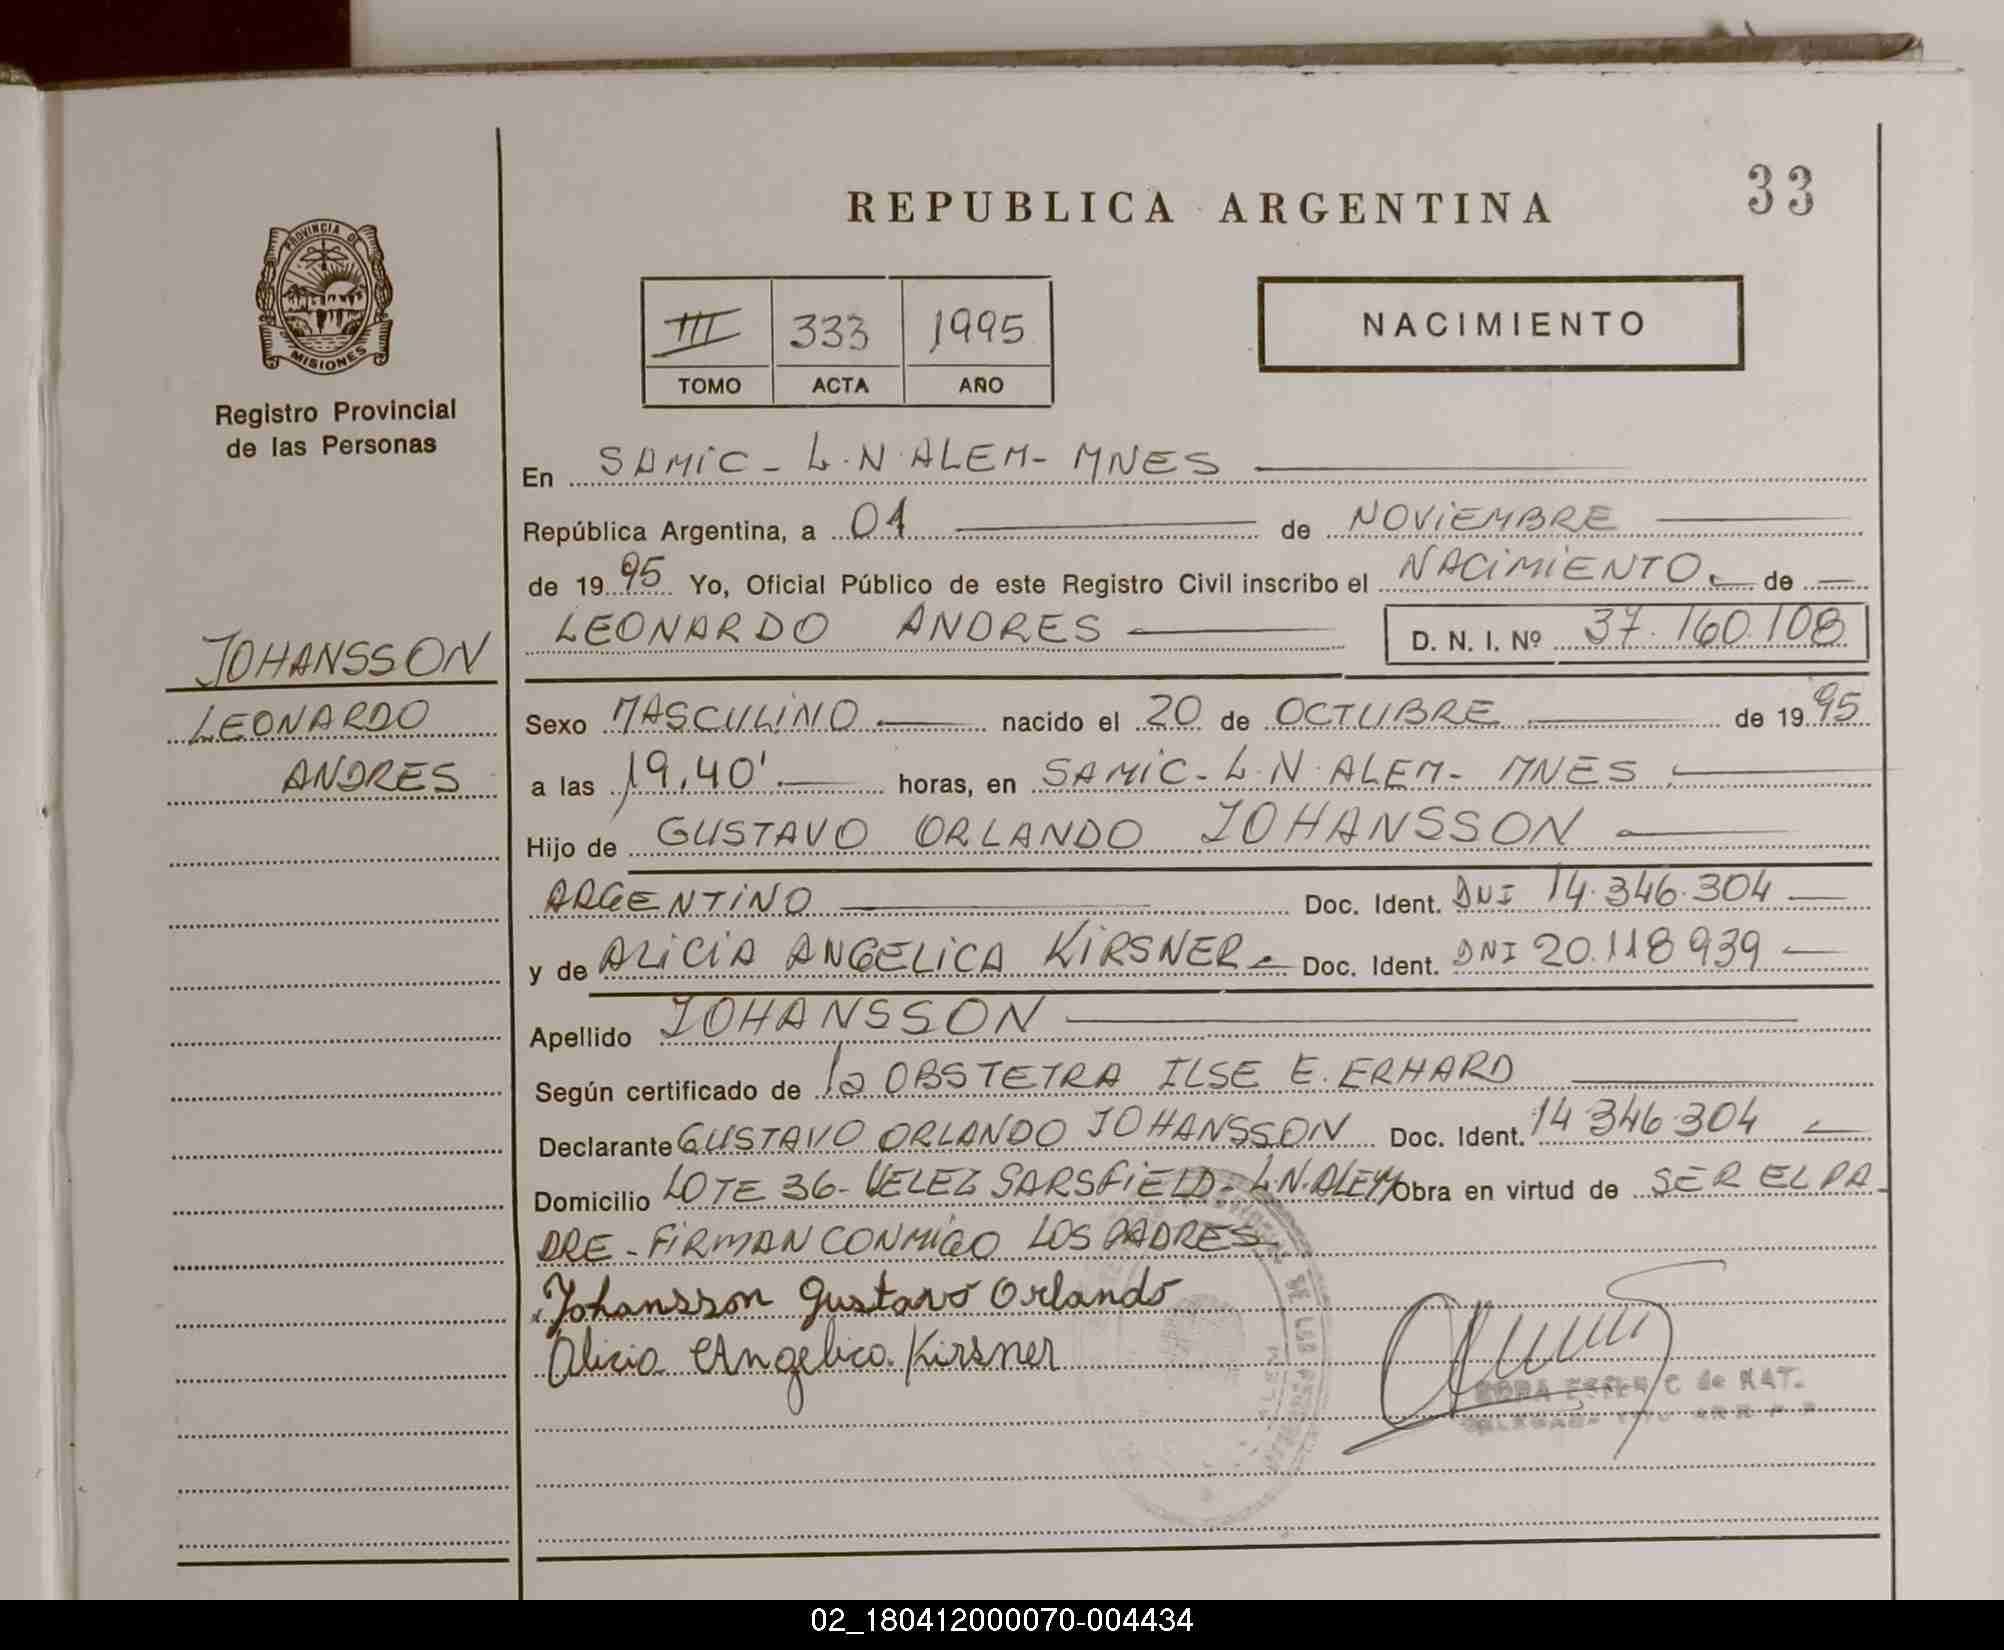 33
REPUBLICA ARGENTINA
PROVINCIA DE
MISIONES
III 333 1995
TOMO ACTA AÑO
NACIMIENTO
Registro Provincial
de las Personas
JOHANSSON
LEONARDO
ANDRES
En SAMIC - L.N. ALEM - MNES
República Argentina, a 01 de NOVIEMBRE
de 1995 Yo, Oficial Público de este Registro Civil inscribo el NACIMIENTO de
LEONARDO ANDRES D. N. I. Nº 37.160.108
Sexo MASCULINO nacido el 20 de OCTUBRE de 1995
a las 19,40' horas, en SAMIC - L.N. ALEM - MNES
Hijo de GUSTAVO ORLANDO JOHANSSON
ARGENTINO Doc. Ident. DNI 14.346.304
y de ALICIA ANGELICA KIRSNER Doc. Ident. DNI 20.118.939
Apellido JOHANSSON
Según certificado de la OBSTETRA ILSE E. ERHARD
Declarante GUSTAVO ORLANDO JOHANSSON Doc. Ident. 14 346 304
Domicilio LOTE 36 - VELEZ SARSFIELD - L.N. ALEM Obra en virtud de SER EL PA
DRE - FIRMAN CONMIGO LOS PADRES
Johansson Gustavo Orlando
Alicia Angelica Kirsner
DE LAS
ALEM
de NAT.
02_180412000070-004434